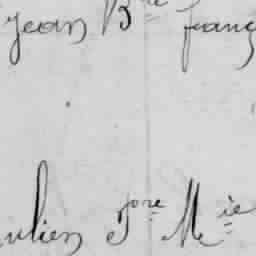 jean Bte franç
ulien Jne Mie